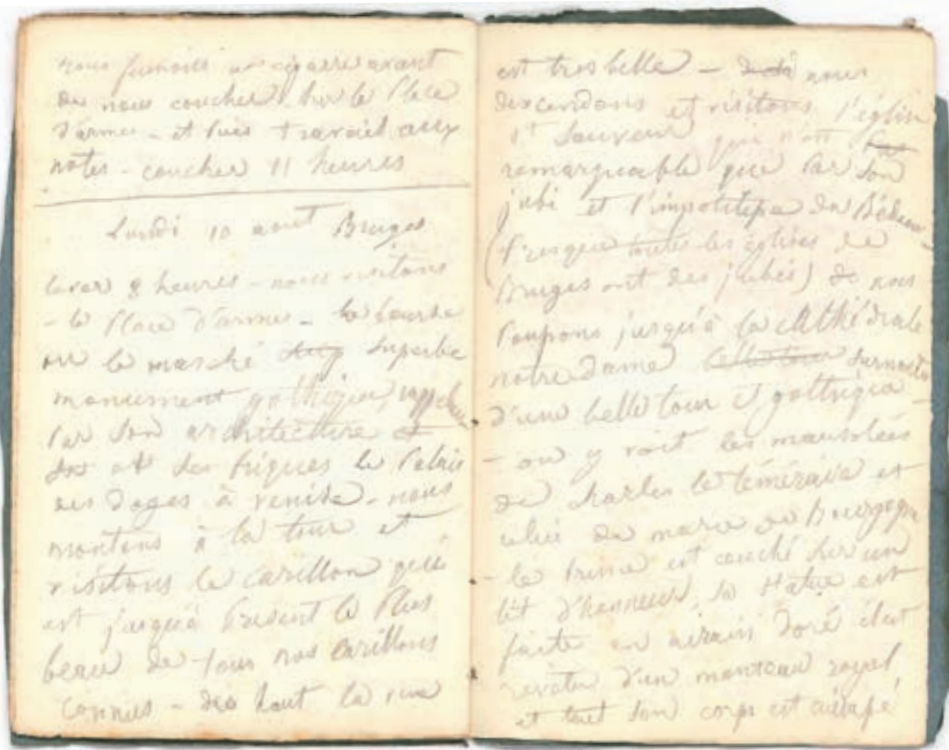 nous fumons un cigarre avant
de nous coucher sur la Place
d'armes - et puis travail aux
notes - coucher 11 heures
Lundi 10 aout Bruges
lever 8 heures - nous visitons
- la Place d'armes - la bourse
ou le marché superbe
monument gothique
Par son architecture et
et des briques le Palais
des Doges à venise - nous
montons à la tour et
visitons le carillon qui
est jusqu'à Présent le Plus
beau de tous nos carillons
connus - du haut la vue
est tres belle - nous
descendons et visitons l'église
St Sauveur qui n'est pas
remarquable que Par son
jubé et
(Presque toutes les églises de
Bruges ont des jubés) de nous
Poussons jusqu'à la cathédrale
notre Dame surmontée
d'une belle tour gothique -
- on y voit les mausolées
de charles le téméraire et
celui de marie de Bourgogne
- le Prince est couché sur un
lit d'honneur, sa statue est
faite en airain doré elle est
revetue d'un manteau royal,
et tout son corps est